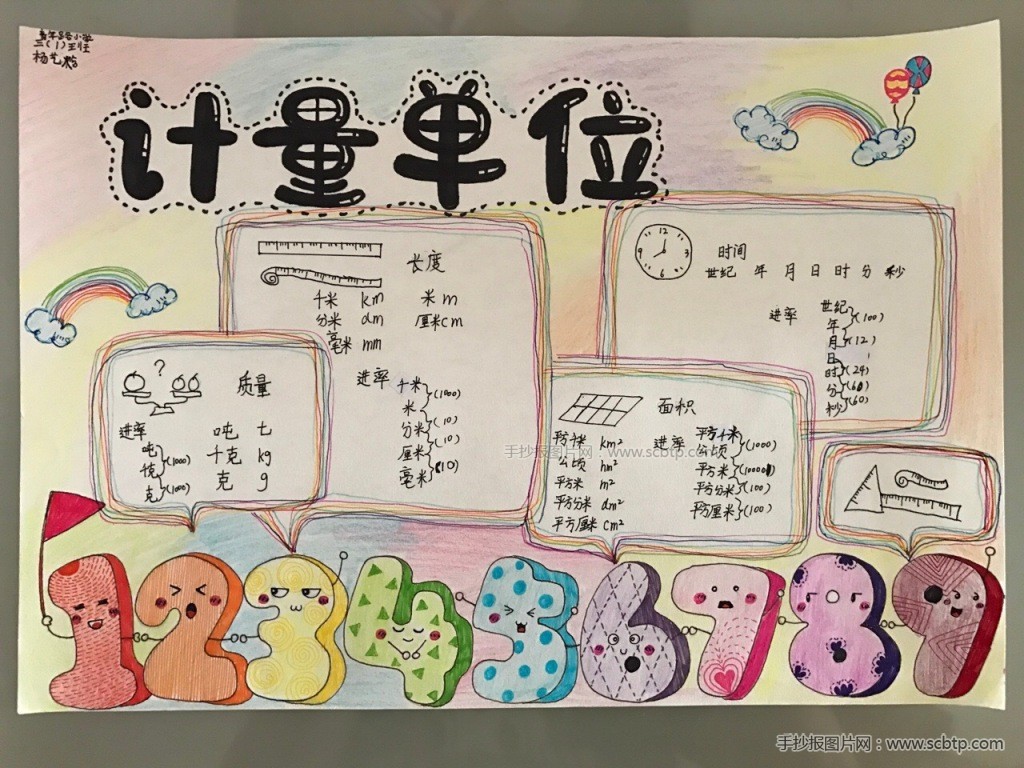 三(1)班
杨艺
计量单位
12
3
6
9
时间
世纪 年 月 日 时 分 秒
进率
世纪
年
月
日
时
分
秒
(100)
(12)
(24)
(60)
(60)
长度
千米 km 米 m
分米 dm 厘米 cm
毫米 mm
进率
千米
米
分米
厘米
毫米
(1000)
(10)
(10)
(10)
?
质量
进率
吨 t
千克 kg
克 g
吨
克
(1000)
(1000)
面积
平方千米 km²
公顷 hm²
平方米 m²
平方分米 dm²
平方厘米 cm²
进率
平方千米
公顷
平方米
平方分米
平方厘米
(100)
(100)
手抄报图片网:www.scbtp.com
1 2 3 4 5 6 7 8 9
手抄报图片网:www.scbtp.com